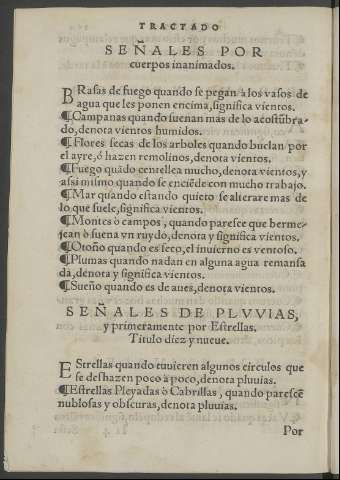 TRACTADO
SEÑALES POR
cuerpos inanimados.
BRasas de fuego quando se pegan à los vasos de
agua que les ponen encima, significa vientos.
¶Campanas quando suenan mas de lo acostũbra-
do, denota vientos humidos.
¶Flores secas de los arboles quando buelan por
el ayre, ó hazen remolinos, denota vientos.
¶Fuego quãdo centellea mucho, denota vientos, y
assi mismo quando se enciẽde con mucho trabajo.
¶Mar quando estando quieto se alterare mas de
lo que suele, significa vientos.
¶Montes ò campos, quando paresce que berme-
jean ò suena vn ruydo, denota y significa vientos.
¶Otoño quando es seco, el inuierno es ventoso.
¶Plumas quando nadan en alguna agua remansa
da, denota y significa vientos.
¶Sueño quando es de aues, denota vientos.
SEÑALES DE PLVVIAS,
y primeramente por Estrellas.
Titulo diez y nueue.
EStrellas quando tuuieren algunos circulos que
se deshazen poco à poco, denota pluuias.
¶Estrellas Pleyadas ò Cabrillas, quando parescẽ
nublosas y obscuras, denota pluuias.
Por